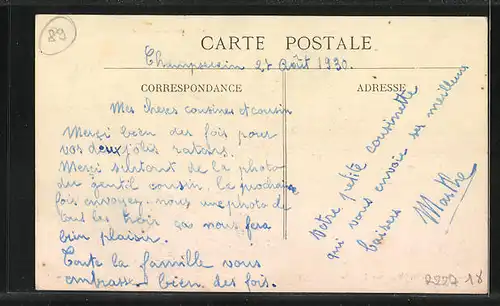 89
CARTE POSTALE
Champsecrain 27 Août 1930.
CORRESPONDANCE
ADRESSE
Mes cheres cousines et cousin
Merci bien des fois pour
vos deux jolis
Merci surtout de la photo
du gentil cousin. la prochaine
fois envoyez. nous une photo de
tous les trois ça nous fera
bien plaisir.
Toute la famille vous
embrasse bien des fois.
Votre petite cousinette
qui vous envoie ses meilleurs
baisers
Marthe